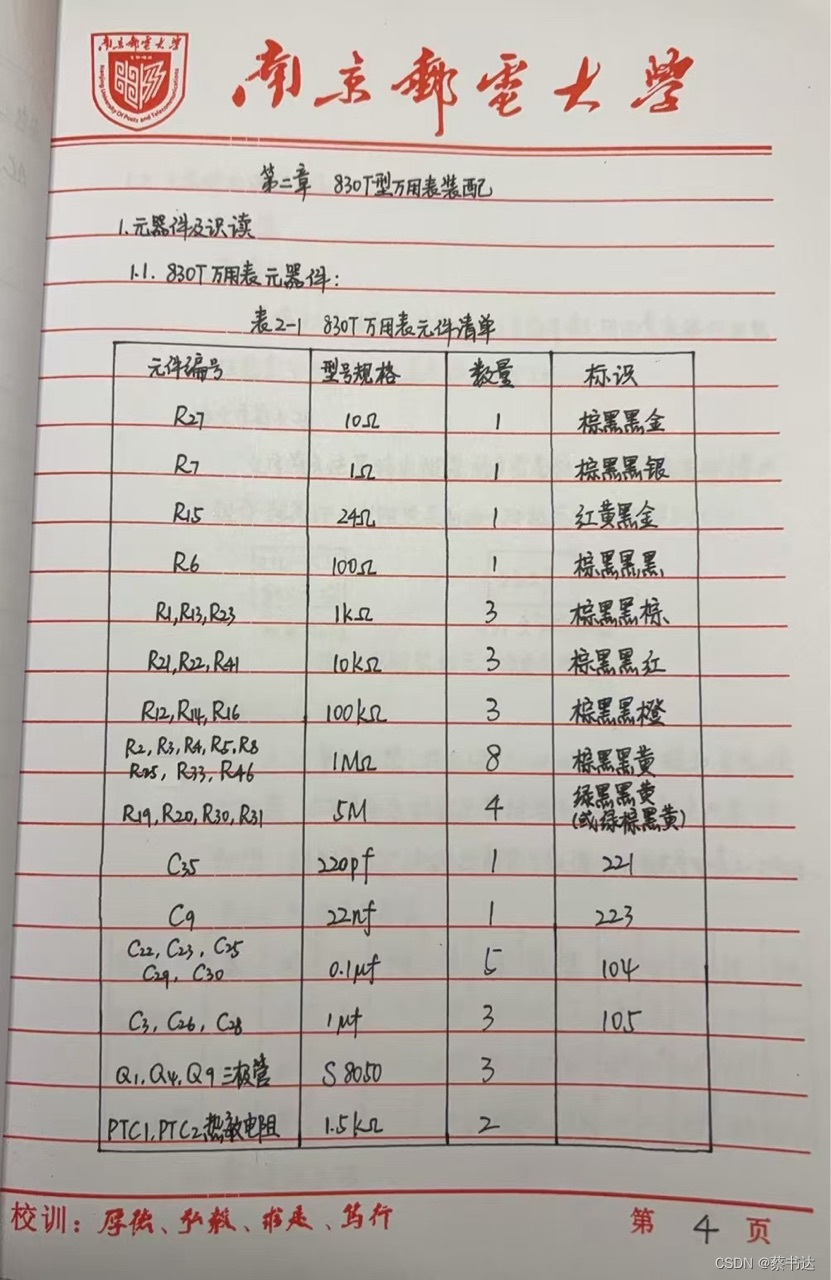 南京邮电大学
Nanjing University Of Posts and Telecommunications
南京郵電大學
第二章 830T型万用表装配
1.元器件及识读
1.1. 830T万用表元器件:
表2-1 830T万用表元件清单
元件编号 型号规格 数量 标识
R27 10Ω 1 棕黑黑金
R7 1Ω 1 棕黑黑银
R15 24Ω 1 红黄黑金
R6 100Ω 1 棕黑黑黑
R1,R13,R23 1kΩ 3 棕黑黑棕
R21,R22,R41 10kΩ 3 棕黑黑红
R12,R14,R16 100kΩ 3 棕黑黑橙
R2,R3,R4,R5,R8
R25,R33,R46 1MΩ 8 棕黑黑黄
R19,R20,R30,R31 5M 4 绿黑黑黄
(或绿棕黑黄)
C35 220pf 1 221
C9 22nf 1 223
C22,C23,C25
C29,C30 0.1μf 5 104
C3,C26,C28 1μf 3 105
Q1,Q4,Q9三极管 S8050 3
PTC1,PTC2热敏电阻 1.5kΩ 2
校训:厚德、弘毅、求是、笃行
第 4 页
CSDN @蔡书达